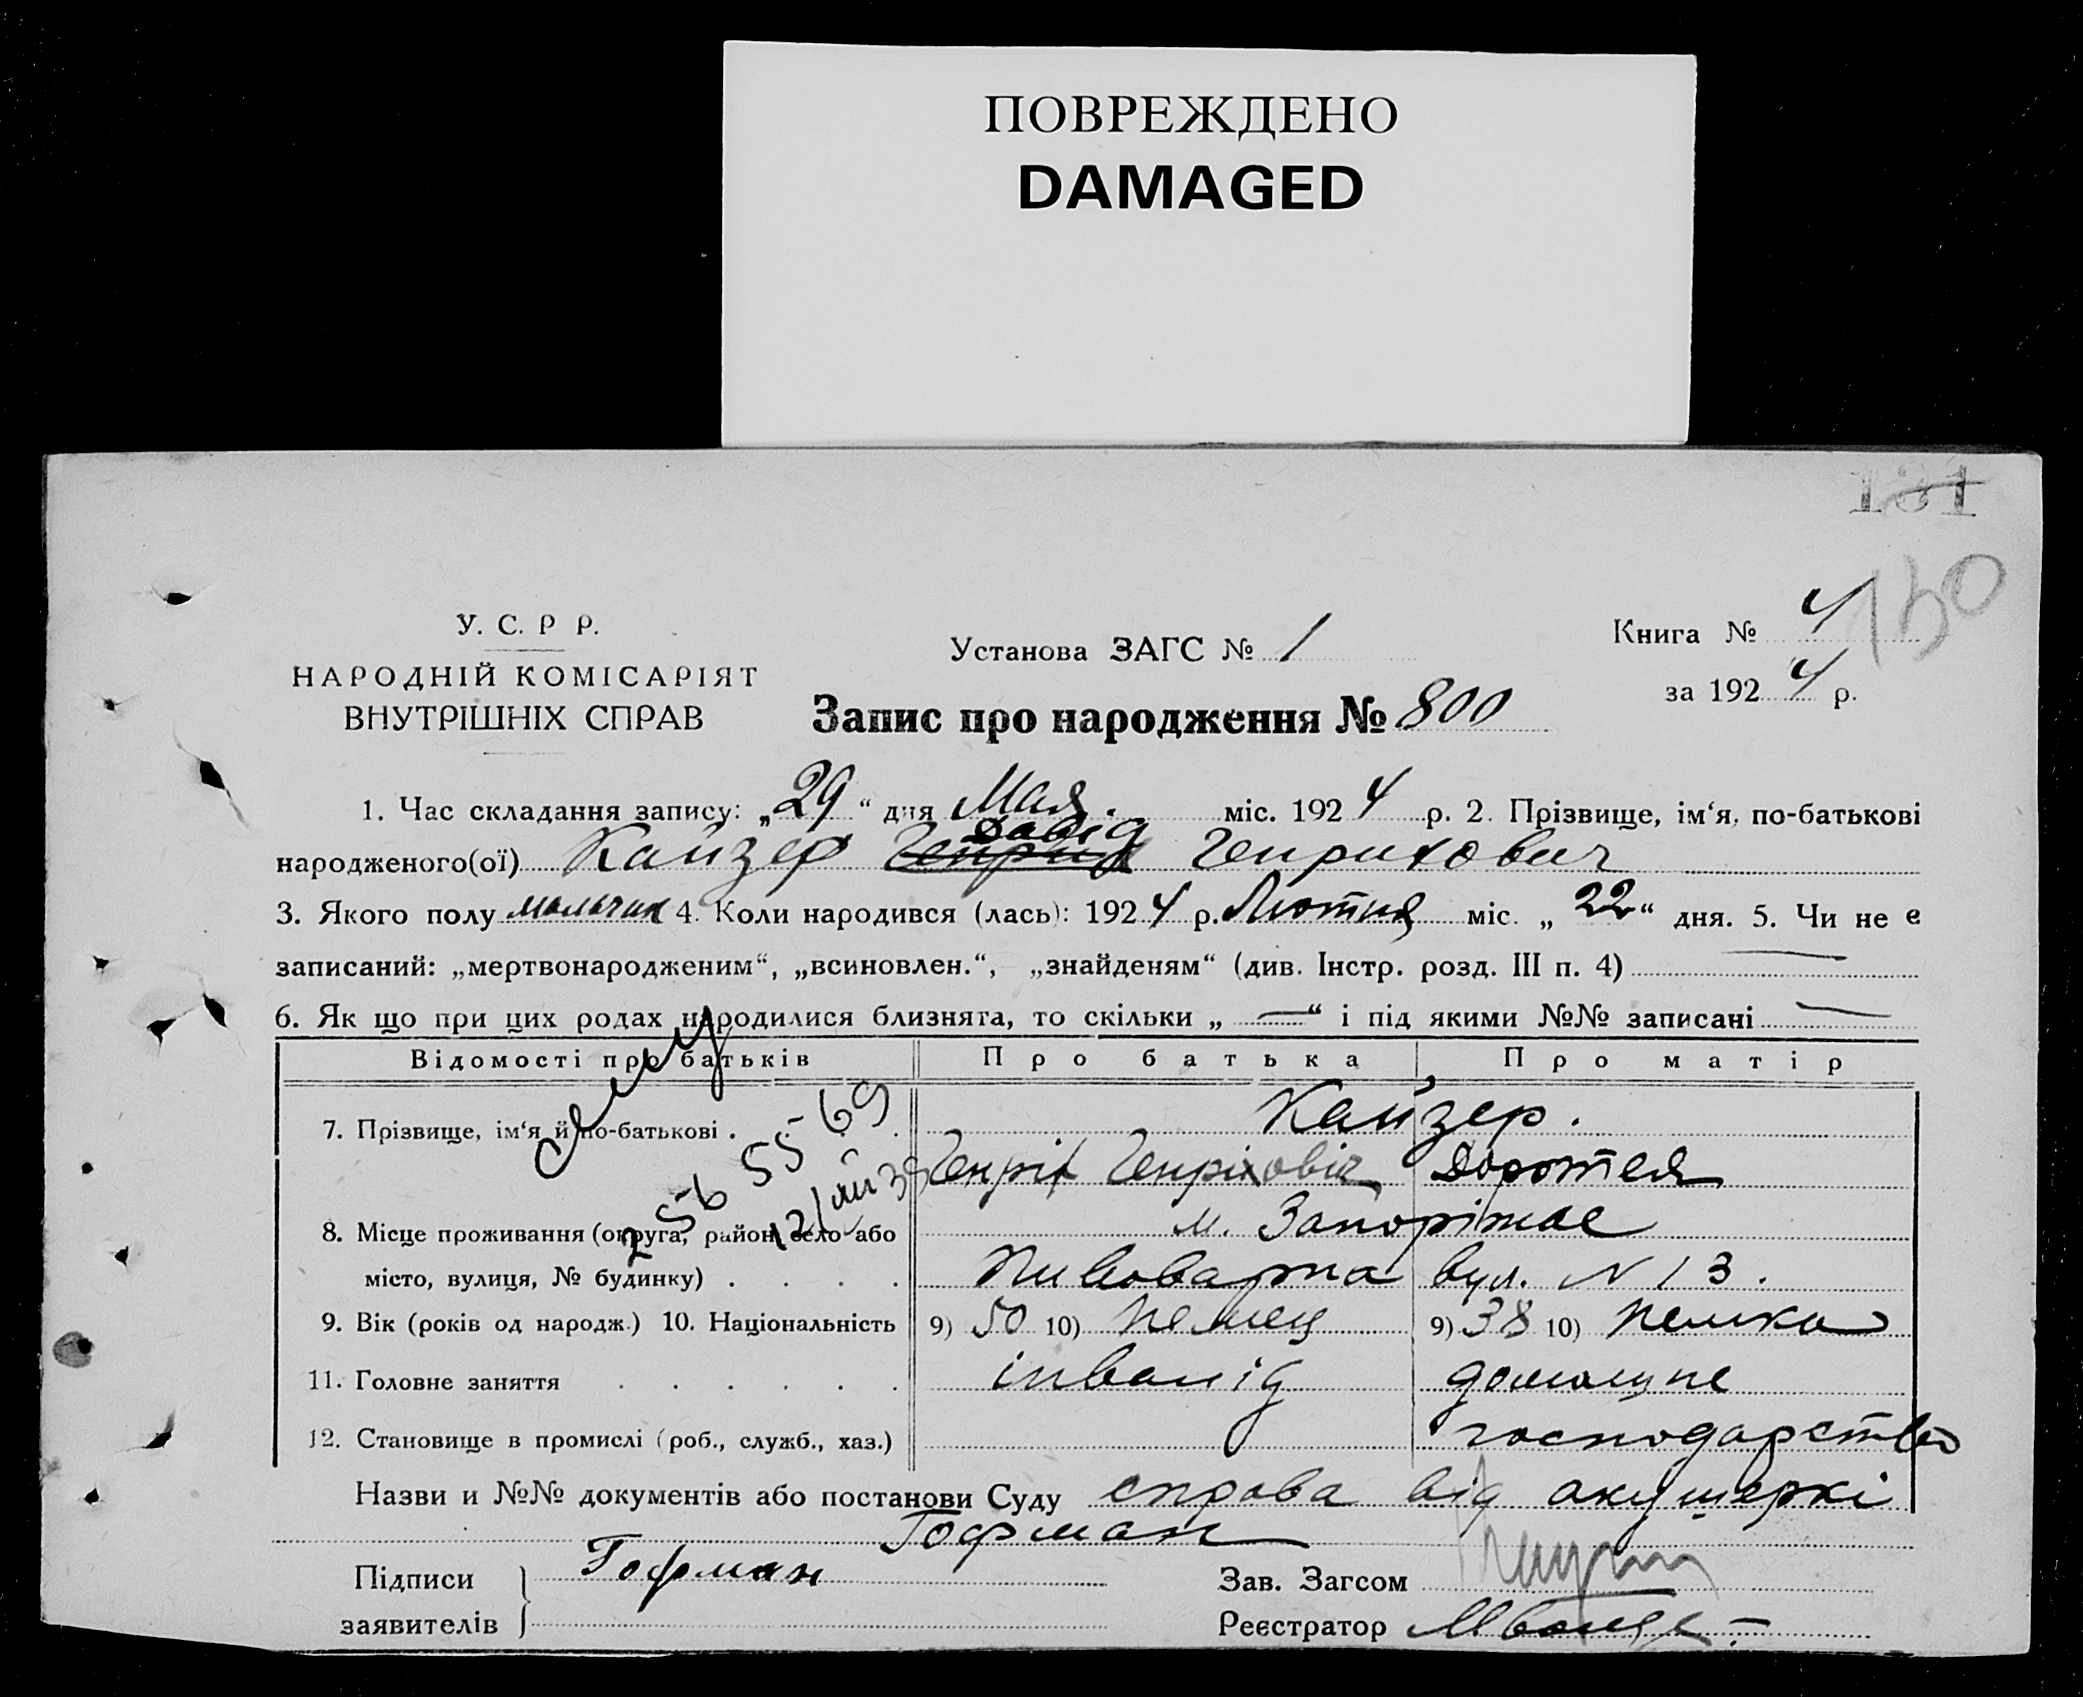 ПОВРЕЖДЕНО
DAMAGED
131
130
У. С. Р Р.
НАРОДНІЙ КОМІСАРІЯТ
ВНУТРІШНІХ СПРАВ
Установа ЗАГС № 1
Книга № 4
за 1924 р.
Запис про народження № 800
1. Час складання запису: „29“ дня Мая міс. 1924 р. 2. Прізвище, ім‘я, по-батькові
Давід
народженого(ої) Кайзер Генрих Генрихович
3. Якого полу мальчик 4. Коли народився (лась): 1924 р. Лютня міс. „22“ дня. 5. Чи не є
записаний: „мертвонародженим“, „всиновлен.“, „знайденям“ (див. Інстр. розд. III п. 4) —
6. Як що при цих родах народилися близнята, то скільки „ — “ і під якими №№ записані —
Відомості про батьків Про батька Про матір
7. Прізвище, ім‘я й по-батькові . Кайзер.
Генріх Генріховіч Доротея
8. Місце проживання (округа, район, село або м. Запоріжжє
місто, вулиця, № будинку) . . . . вул. N 13.
9. Вік (років од народж.) 10. Національність 9) 50 10) немец 9) 38 10) немка
11. Головне заняття . . . . . . інвалід домашне
12. Становище в промислі (роб., служб., хаз.) господарство
Назви и №№ документів або постанови Суду справа від акушеркі
Гофман
Підписи заявителів Гофман
Зав. Загсом
Реєстратор